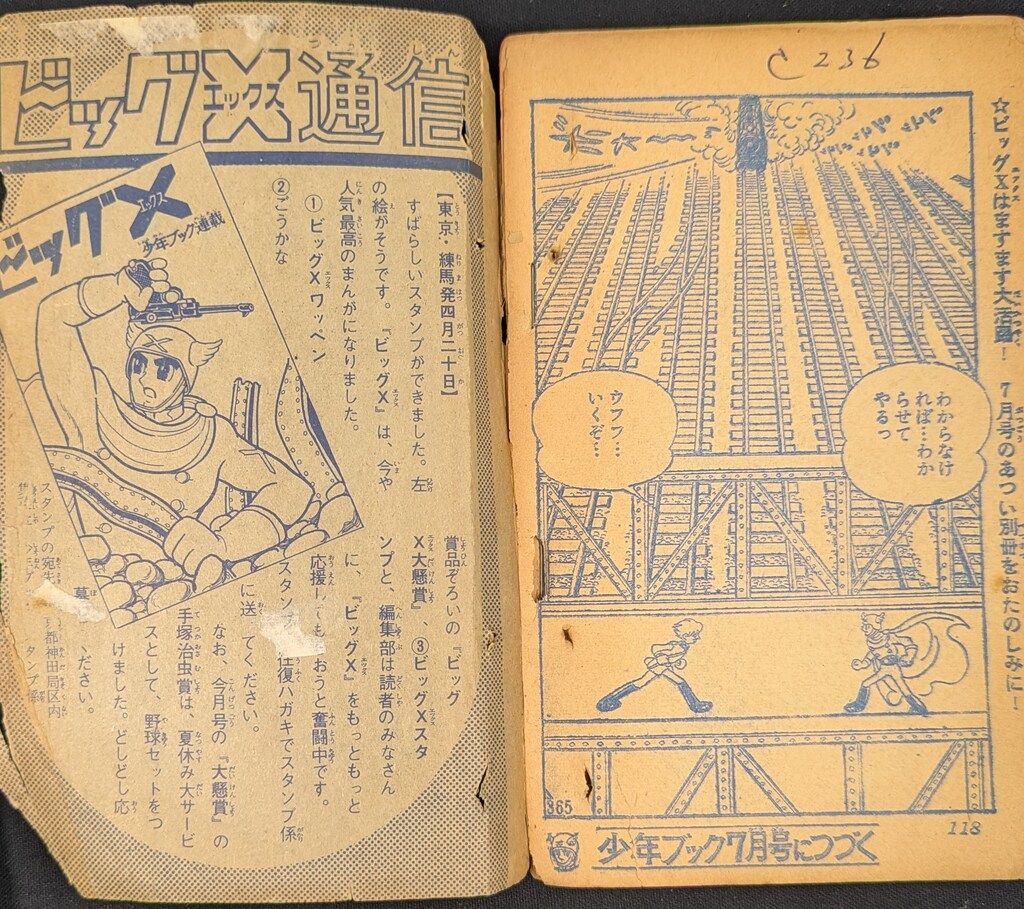 C236
☆ビッグXはますます大活躍! 7月号のあつい別冊をおたのしみに!
わからなけ
れば…わか
らせて
やるっ
ウフフ…
いくぞ…
365
113
少年ブック7月号につづく
ビッグX通信
エックス
ビッグX
エックス
少年ブック連載
【東京・練馬発四月二十日】
すばらしいスタンプができました。左
の絵がそうです。『ビッグX』は、今や
人気最高のまんがになりました。
①ビッグXワッペン
②ごうかな
賞品ぞろいの『ビッグ
X大懸賞』、③ビッグXスタ
ンプと、編集部は読者のみなさん
に、『ビッグX』をもっともっと
応援してもらおうと奮闘中です。
スタンプ 往復ハガキでスタンプ係
に送 てください。
なお、今月号の『大懸賞』の
手塚治虫賞は、夏休み大サービ
スとして、野球セットをつ
けました。どしどし応
募 ください。
スタンプの宛先
京都神田局区内
タンプ係